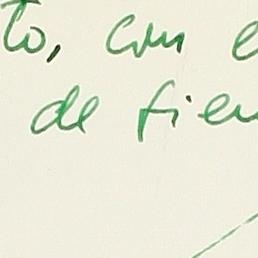 to, con e
de fien